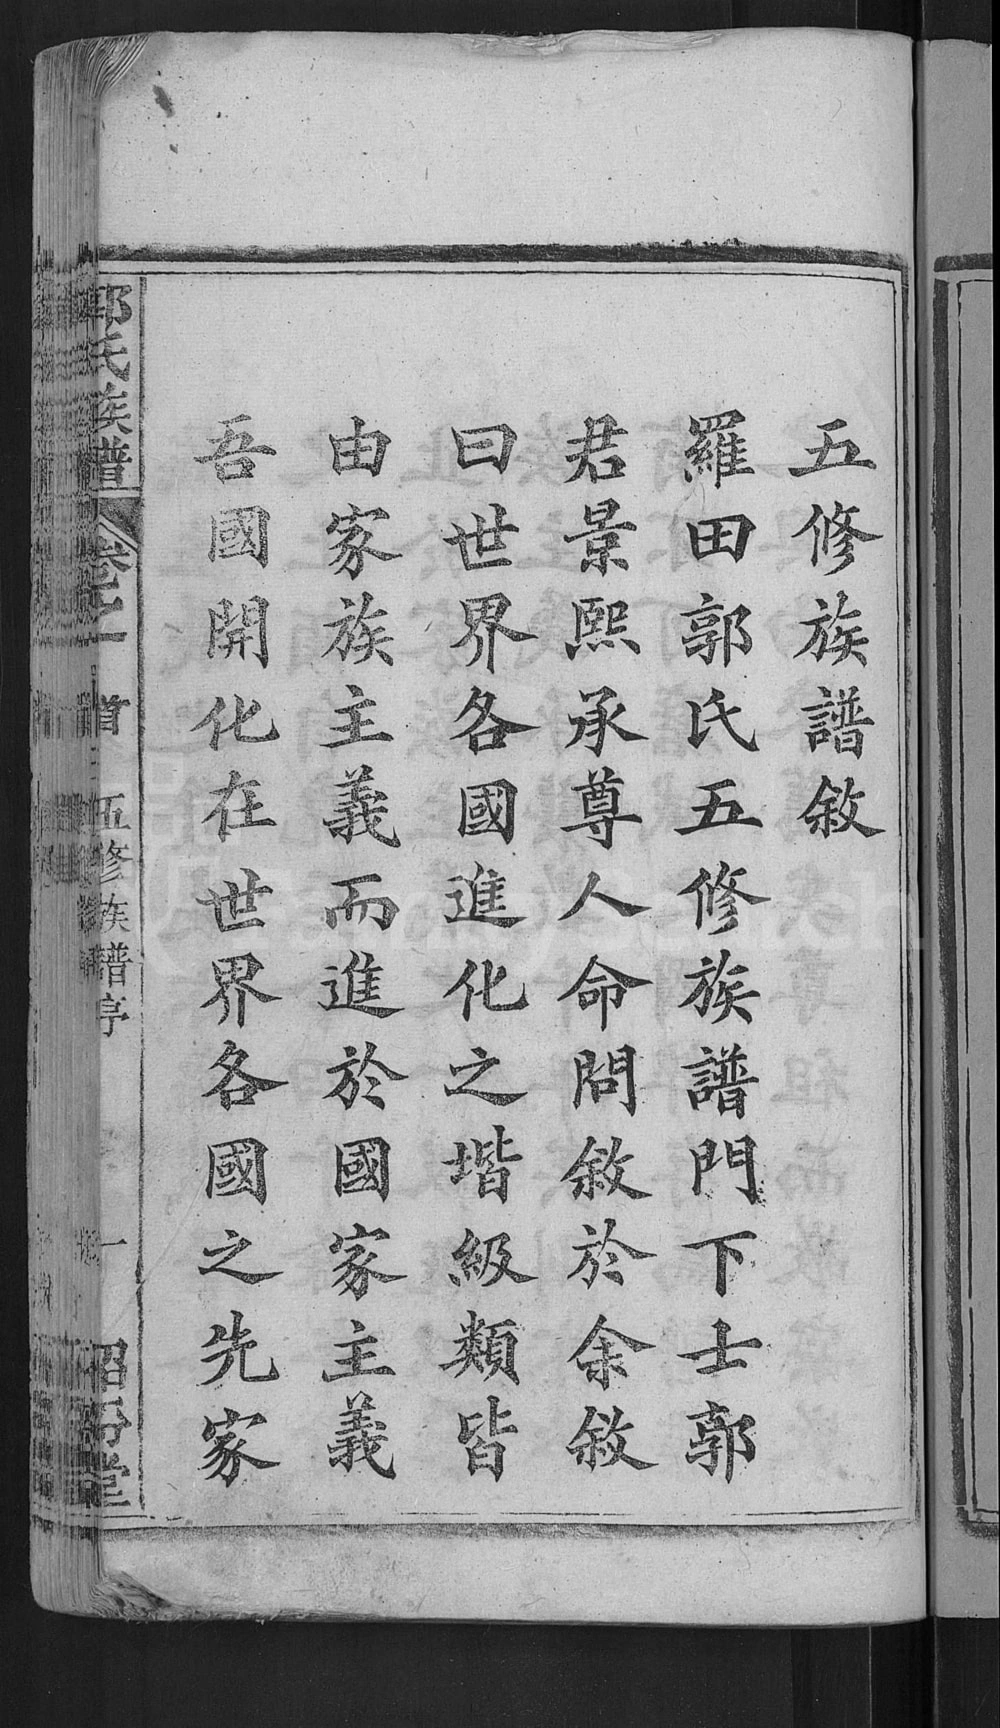 五修族譜敘
羅田郭氏五修族譜門下士郭
君景熙承尊人命問敘於余敘
曰世界各國進化之堦級類皆
由家族主義而進於國家主義
吾國開化在世界各國之先家
郭氏族譜
卷之一
首
五修族譜序
一